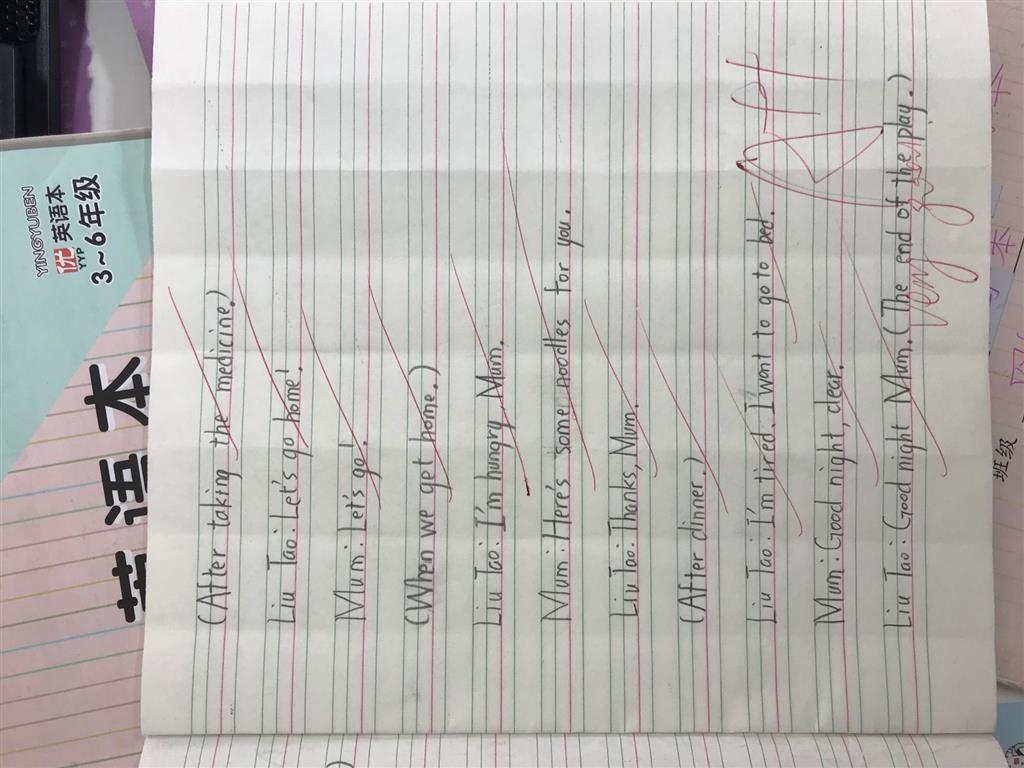 (After taking the medicine.)
Liu Tao: Let's go home!
Mum: Let's go!
(When we get home.)
Liu Tao: I'm hungry, Mum.
Mum: Here's some noodles for you.
Liu Tao: Thanks, Mum.
(After dinner.)
Liu Tao: I'm tired. I want to go to bed.
Mum: Good night, clear.
Liu Tao: Good night Mum. (The end of the play.)
Very
YINGYUBEN
优 英语本
YYP
3~6年级
英语本
班级
本